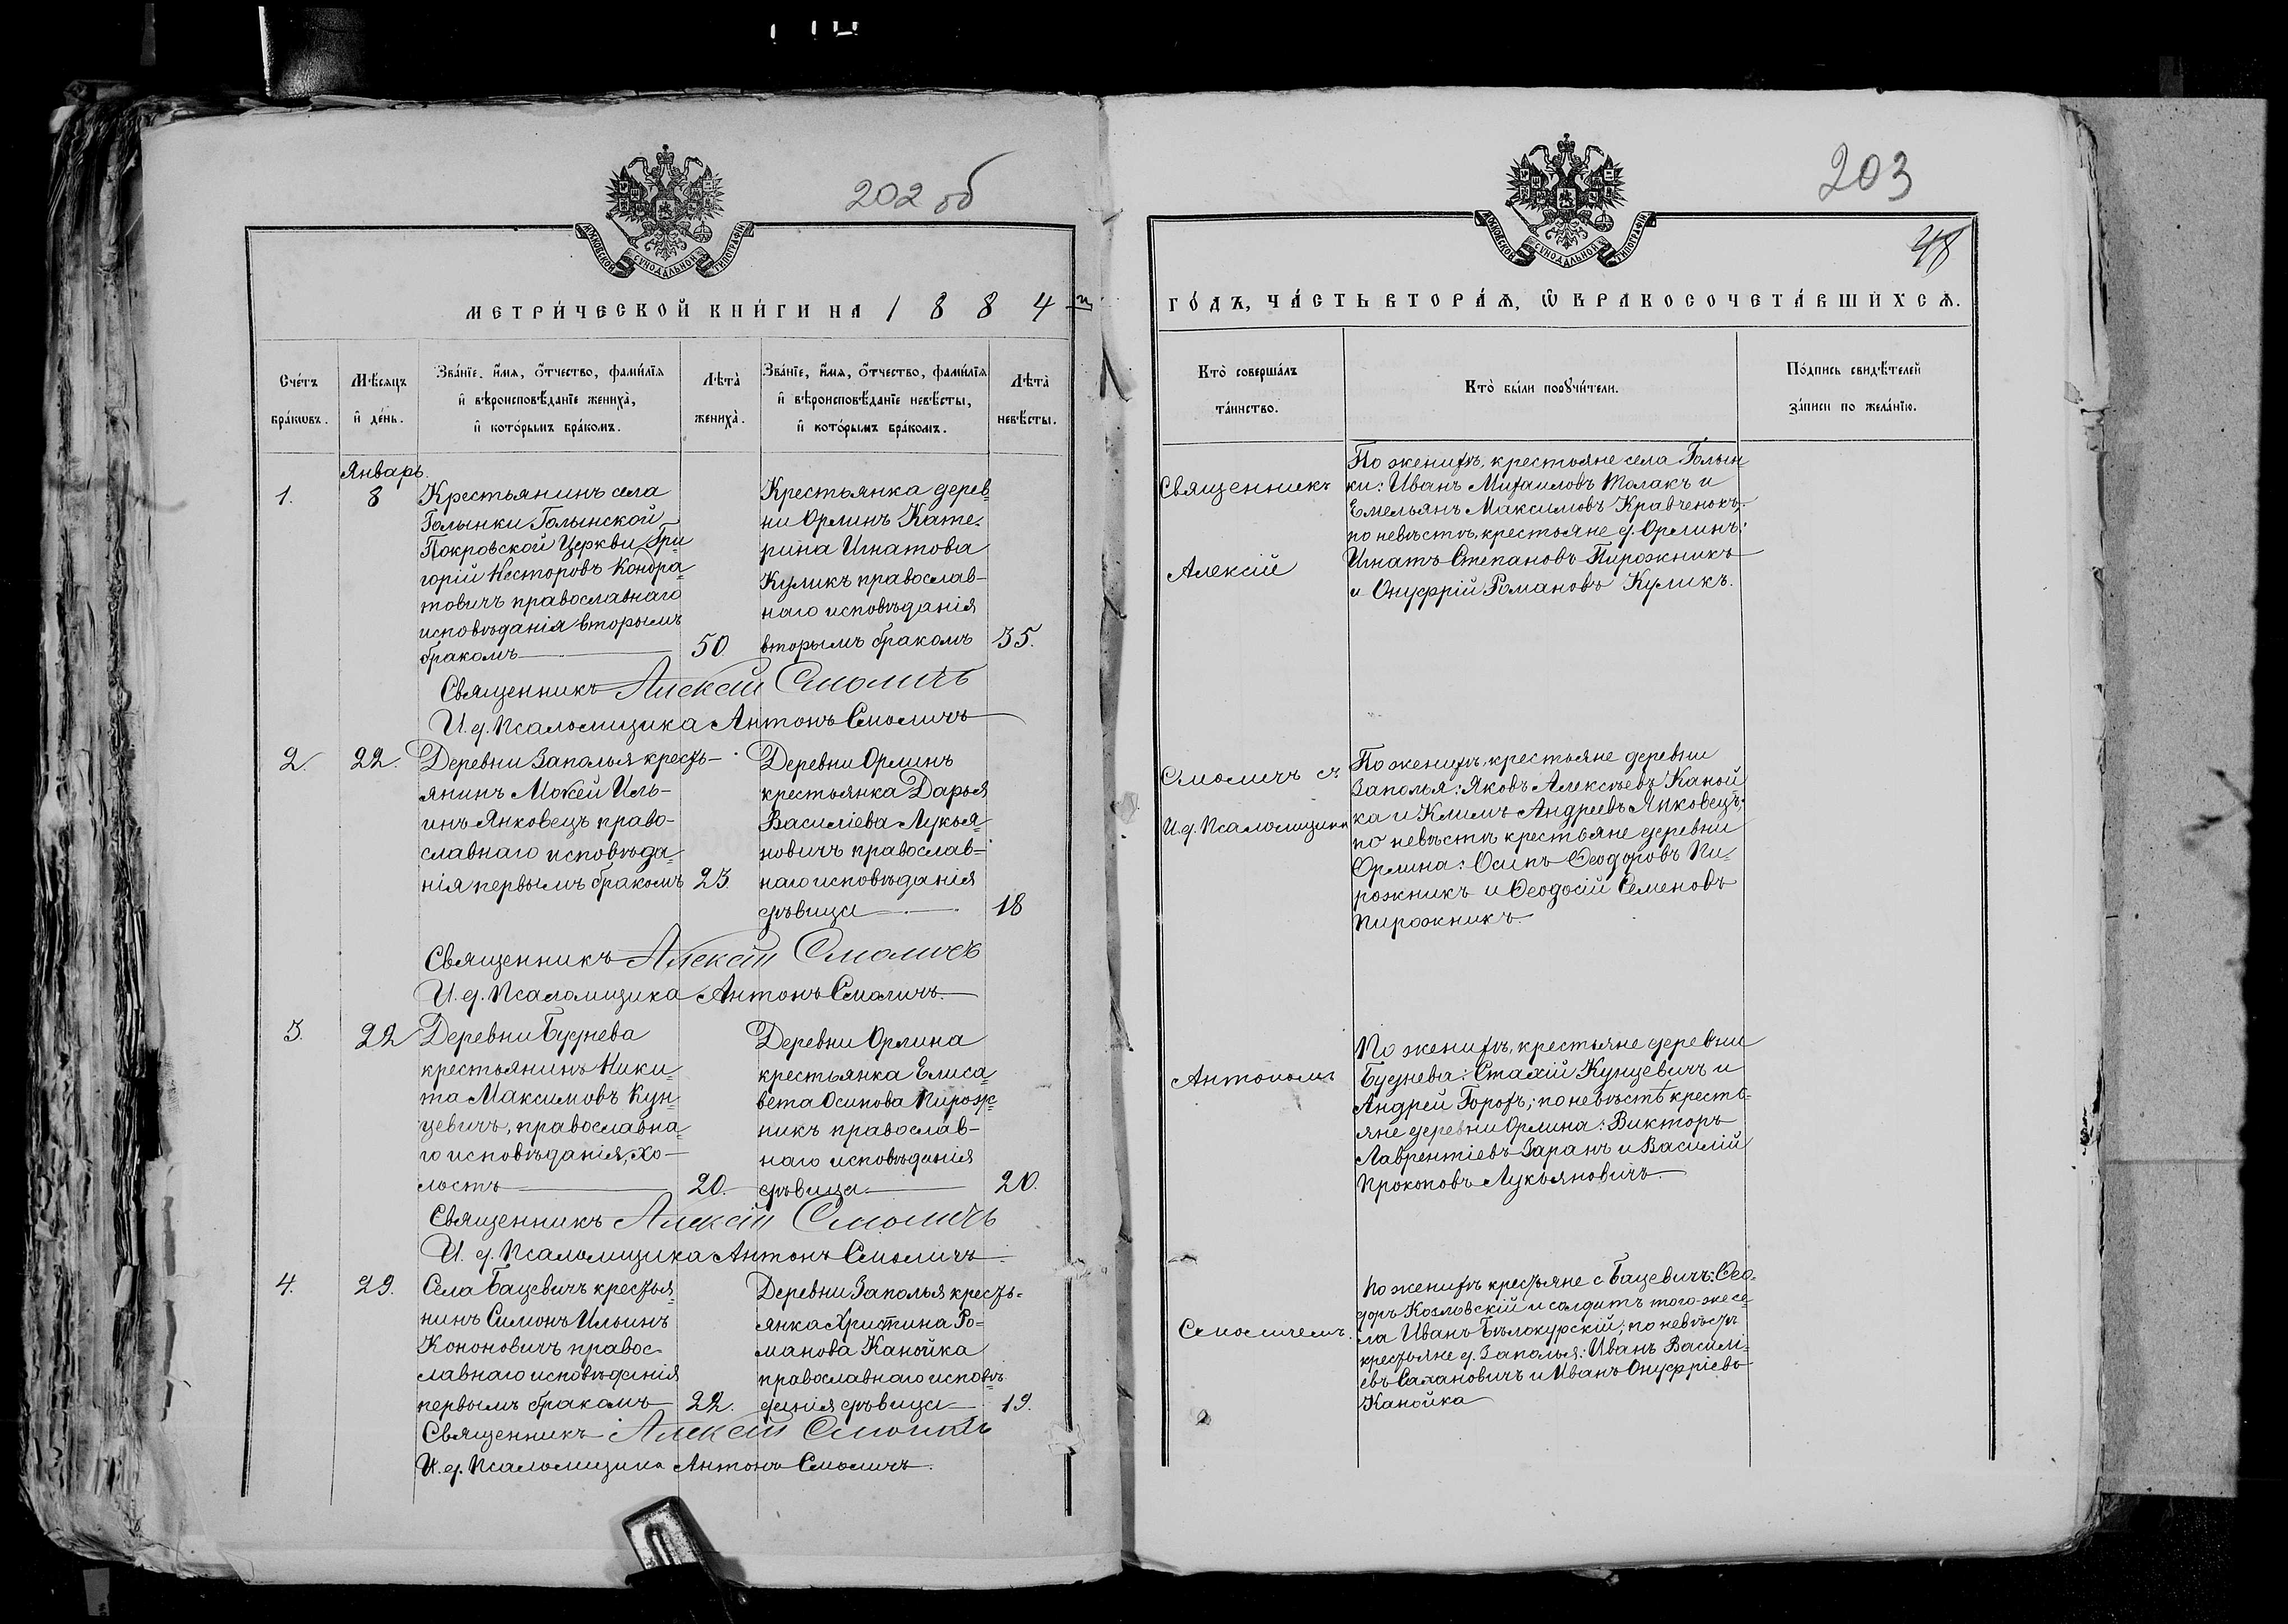 202 об
МОСКОВСКОЙ СѴНОДАЛЬНОЙ ТИПОГРАФІИ
МЕТРИ́ЧЕСКОЙ КНИ́ГИ НА 1884 й
Сче́тъ бра́кωвъ.
Мѣ́сяцъ и҆ де́нь.
Зва́нїе, и҆́мя, о҆́тчество, фами́лїя и҆ вѣроисповѣ́данїе жениха̀, и҆ кото́рымъ бра́комъ.
Лѣта̀ жениха̀.
Зва́нїе, и҆́мя, о҆́тчество, фами́лїя и҆ вѣроисповѣ́данїе невѣ́сты, и҆ кото́рымъ бра́комъ.
Лѣта̀ невѣ́сты.
Январь
1.
8
Крестьянинъ села
Голынки Голынской
Покровской Церкви Гри
горій Несторовъ Кондра
товичъ православнаго
исповѣданія вторымъ
бракомъ
50.
Крестьянка дерев
ни Орлинъ Кате-
рина Игнатова
Куликъ православ-
наго исповѣданія
вторымъ бракомъ
35.
Священникъ Алексій Смоличъ
И. д. Псаломщика Антонъ Смоличъ
2.
22.
Деревни Заполья кресть-
янинъ Мокей Иль-
инъ Янковецъ право-
славнаго исповѣда
нія первымъ бракомъ
23.
Деревни Орлинъ
крестьянка Дарья
Василіева Лукья
новичъ православ-
наго исповѣданія
дѣвица
18
Священникъ Алексій Смоличъ
И. д. Псаломщика Антонъ Смоличъ.
3.
22
Деревни Буднева
крестьянинъ Ники
та Максимовъ Кун
цевичъ, православна
го исповѣданія, хо-
лостъ
20.
Деревни Орлина
крестьянка Елиса
вета Осипова Пирож
никъ православ-
наго исповѣданія
дѣвица
20.
Священникъ Алексій Смоличъ
И. д. Псаломщика Антонъ Смоличъ.
4.
29.
Села Бацевичъ крестья
нинъ Симонъ Ильинъ
Кононовичъ правос-
лавнаго исповѣданія
первымъ бракомъ
22.
Деревни Заполья кресть-
янка Христина Ро-
манова Канойка
православнаго исповѣ
данія дѣвица
19.
Священникъ Алексій Смоличъ
И. д. Псаломщика Антонъ Смоличъ.
203
48
МОСКОВСКОЙ СѴНОДАЛЬНОЙ ТИПОГРАФІИ
ГО́ДЪ, ЧА́СТЬ ВТОРА́Ѧ, Ѡ҆ БРАКОСОЧЕТА́ВШИХСѦ.
Кто̀ соверша́лъ та́инство.
Кто̀ бы́ли порꙋчи́тели.
По́дпись свидѣ́телей за́писи по жела́нїю.
Священникъ
Алексій
Смоличъ съ
И. д. Псаломщика
Антономъ
Смоличемъ.
По женихѣ, крестьяне села Голын
ки: Иванъ Михаиловъ Толакъ и
Емельянъ Максимовъ Кравченокъ;
по невѣстѣ, крестьяне д. Орлинъ:
Игнатъ Степановъ Пирожникъ
и Онуфрій Романовъ Куликъ.
По женихѣ, крестьяне деревни
Заполья: Яковъ Алексѣевъ Каной
ка и Климъ Андреевъ Янковецъ;
по невѣстѣ крестьяне деревни
Орлина: Осипъ Ѳеодоровъ Пи
рожникъ и Ѳеодосій Семеновъ
Пирожникъ.
По женихѣ, крестьяне деревни
Буднева: Стахій Кунцевичъ и
Андрей Горохъ; по невѣстѣ кресть-
яне деревни Орлина: Викторъ
Лаврентіевъ Заранъ и Василій
Прокоповъ Лукьяновичъ.
По женихѣ крестьяне с. Бацевичъ: Ѳео-
доръ Козловскій и солдатъ того-же се
ла Иванъ Бѣлокурскій; по невѣстѣ
крестьяне д. Заполья: Иванъ Васил͏і
евъ Салановичъ и Иванъ Онуфріевъ
Канойка